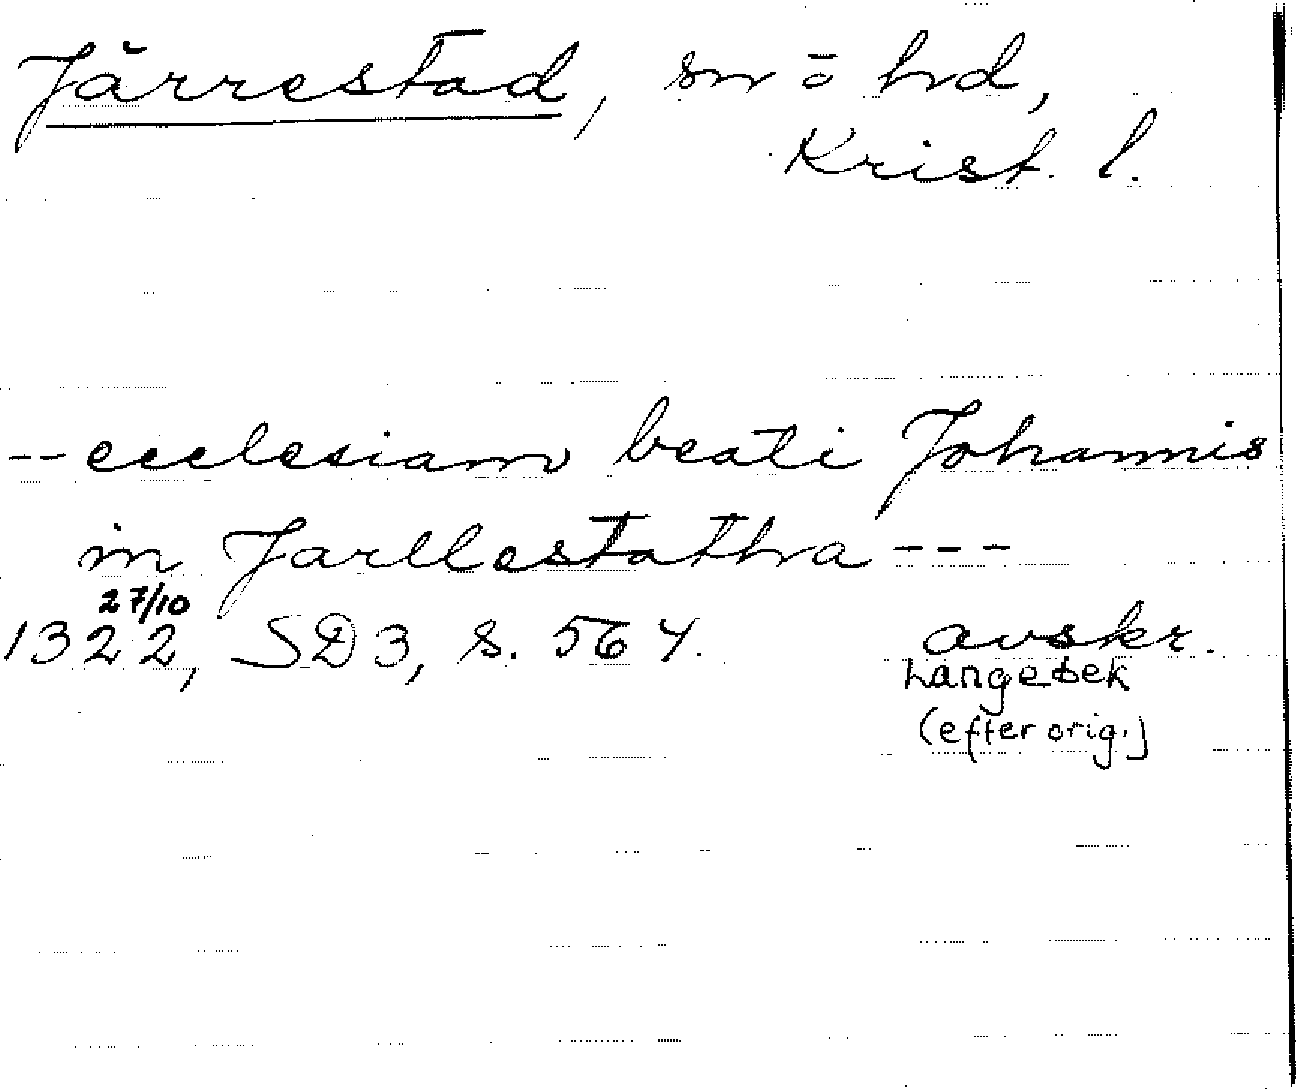 Järrestad, sn o hd,
Krist. l.
-- ecclesiam beati Johannis
in Jarllestatha ---
27/10
1322, SD3, s. 564. avskr.
Langebek
(efter orig.)